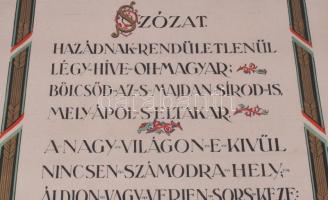 SZÓZAT.
HAZÁDNAK·RENDÜLETLENÜL
LÉGY·HÍVE·OH·MAGYAR;
BÖLCSŐD·AZ·S·MAJDAN·SÍROD·IS,
MELY·ÁPOL·S·ELTAKAR.
A·NAGY·VILÁGON·E·KIVÜL
NINCSEN·SZÁMODRA·HELY;
ÁLDJON·VAGY·VERJEN·SORS·KEZE: